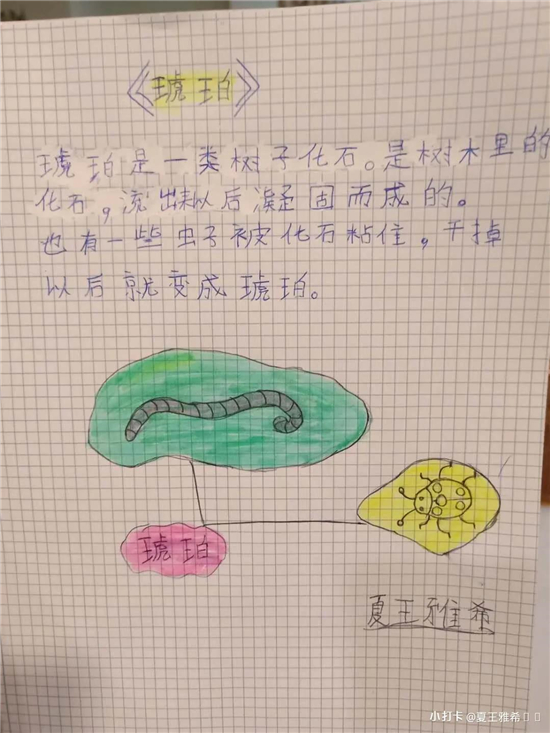 《琥珀》
琥珀是一类树子化石。是树木里的
化石，流出来以后凝固而成的。
也有一些虫子被化石粘住，干掉
以后就变成琥珀。
琥珀
夏王雅希
小打卡@夏王雅希